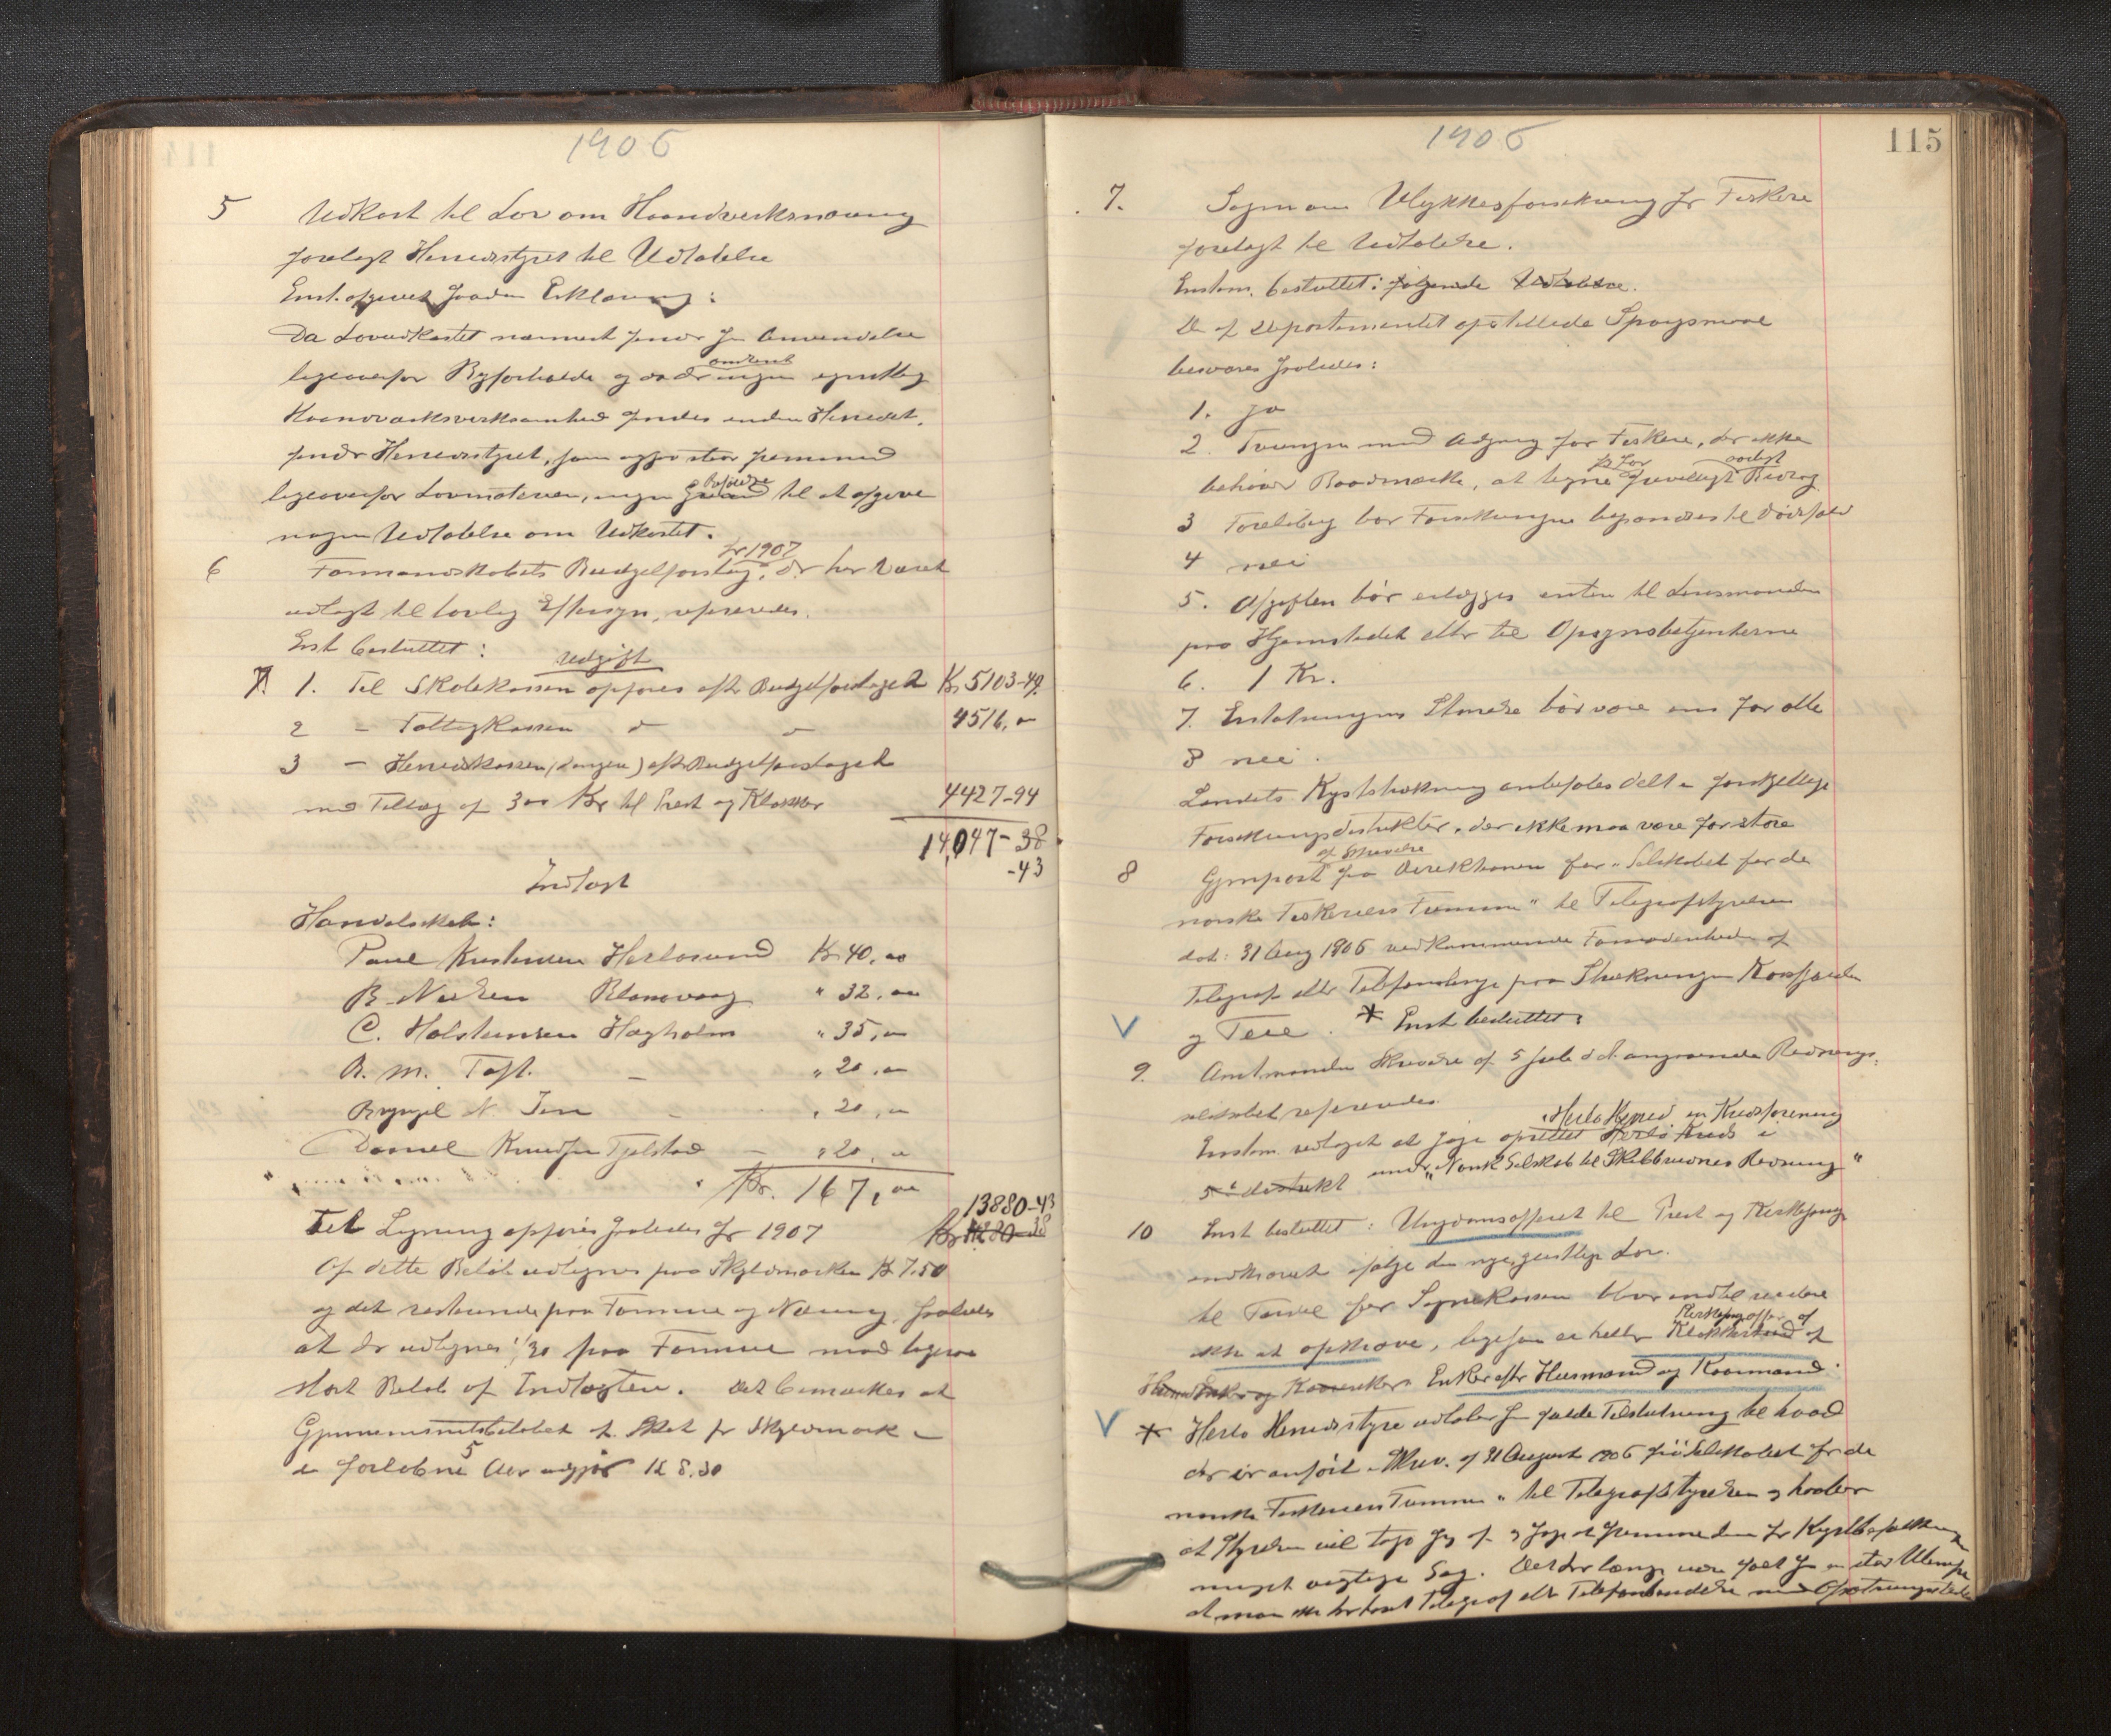 1906
5 Udkast til Lov om Haandverksnæring
forelagt Herredstyret til Udtalelse
Enst. afgivet saadan Erklæring:
Da Lovudkastet nærmest finder sin Anvendelse
ligeoverfor Byforholde og da der omtrent ingen egentlig
Haandværksvirksomhed findes inden Herredet,
finder Herredstyret, som ogsaa staar fremmed
ligeoverfor Lovmaterien, ingen Føie til at afgive
nogen Udtalelse om Udkastet.
6 Formandskabets Budgetforslag for 1907, der har været
udlagt til lovlig Eftersyn, refereredes.
Enst besluttet:
Udgift
1. Til Skolekassen opføres efter Budgetforslaget Kr 5103-49
2 - Fattigkassen 4516,00
3 - Herredskassen, efter Budgetforslaget
med Tillæg af 300 Kr til Prest og Klokker 4427-94
14,047-38
-43
Indtægt
Handelsskat:
Paul Kristensen Herløsund Kr 40,00
B. Nielsen Blomvaag " 32,00
C. Holstensen Hagholm " 35,00
A. M. Toft. - " 20,00
Brynjel N. - " 20,00
Daniel Knudsen Tjelstad - " 20,00
Kr. 167,00
13880-43
Til Ligning opføres saaledes for 1907 Kr
Af dette Beløb udlignes paa Skyldmarken Kr 7.50
og det resterende paa Formue og Næring, saaledes
at der udlignes 1/30 paa Formue mod ligesaa
stort Beløb af Indtægten. Det bemærkes at
Gjennemsnitsbeløbet af Skat pr Skyldmark
i de forløbne 5 Aar udgjør Kr 8.30
1906
115
7. Sagen om Ulykkesforsikring for Fiskere
forelagt til Udtalelse.
Enstem. besluttet: følgende Udtalelse.
De af Departementet opstillede Spørgsmaal
besvares saaledes:
1. Ja
2. Tvungen med Adgang for Fiskere, der ikke
behøver Baadmærke, at tegne sig for frivilligt Bidrag
3 Foreløbig bør Forsikringen begrændses til Dødsfald
4 nei
5. Afgiften bør erlægges enten til Lensmanden
paa Hjemstedet eller til Opsynsbetjenterne
6. 1 Kr.
7. Erstatningens Størrelse bør være ens for alle
8 nei.
Landets Kyststrækning anbefales delt i forskjellige
Forsikringsdistrikter, der ikke maa være for store
8 Gjenpart af Skrivelse fra Direktionen for "Selskabet for de
norske Fiskeriers Fremme" til Telegrafstyrelsen
dat: 31 Aug 1906 vedkommende Fornødenheden af
Telegraf eller Telefonanlæg paa Strækningen Korsfjorden
og Feie. * Enst besluttet:
9. Amtmandens Skrivelse af 5 Juli d. A. angaaende Rednings-
selskabet refereredes.
Enstem. vedtaget at søge oprettet Herlø Kreds i Herlø Herred en Kredsforening
5te distrikt under "Norsk Selskab til Skibbrudnes Redning"
10 Enst besluttet: Ungdomsofferet til Prest og Kirkesanger
indkræves ifølge den nye geistlige Lov.
til Fordel for Sognekassen blir indtil videre
ikke at opkræve, ligesom ei heller Kirkesangeroffer af
Enker efter Husmand og Kaarmand.
* Herlø Herredsstyre udtaler sin fulde Tilslutning til hvad
der er anført i Skriv. af 31 August 1906 fra "Selskabet for de
norske Fiskeriers Fremme" til Telegrafstyrelsen og haaber
at Styrelsen vil tage sig af og søge at fremme den for Kystbefolkningen
meget vigtige Sag. Det har længe været følt som en stor Ulempe
at man ikke har havt Telegraf eller Telefonforbindelse med